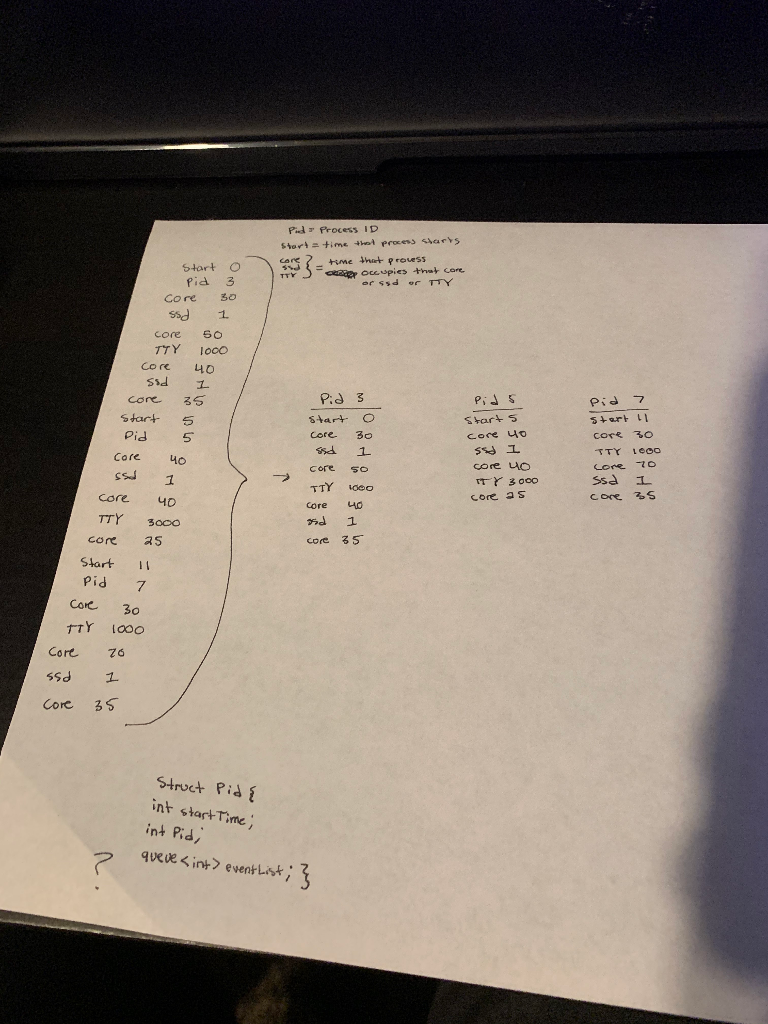 Pid = Process ID
Start = time that process starts
core
ssd
TTY
} = time that process
occupies that core
or ssd or TTY
Start 0
Pid 3
Core 30
ssd 1
core 50
TTY 1000
Core 40
Ssd 1
Core 35
Start 5
Pid 5
Core 40
ssd 1
Core 40
TTY 3000
Core 25
Start 11
Pid 7
Core 30
TTY 1000
Core 70
ssd 1
Core 35
→
Pid 3
Start 0
Core 30
ssd 1
core 50
TTY 1000
Core 40
ssd 1
core 35
Pid 5
Start 5
Core 40
ssd 1
core 40
TTY 3000
Core 25
Pid 7
Start 11
core 30
TTY 1000
Core 70
ssd 1
Core 35
Struct Pid {
int startTime;
int Pid;
queue<int> eventList; }
?